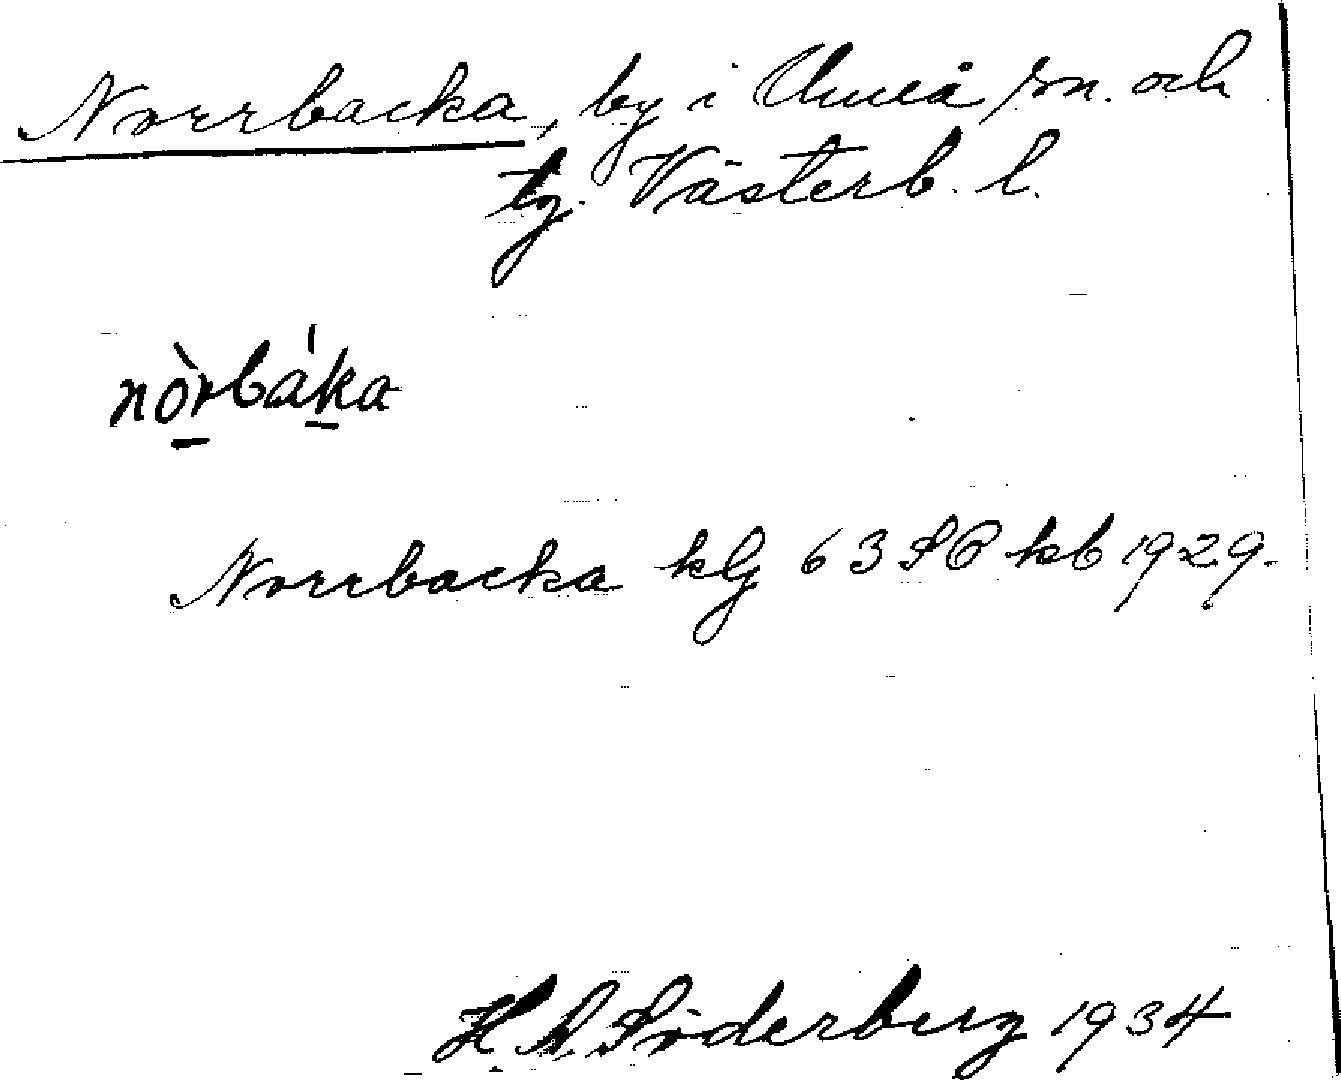 Norrbacka, by i Umeå sn. och
tg. Västerb. l.
nòrbáka
Norrbacka klg 63 SC kb 1929.
H. A. Söderberg 1934